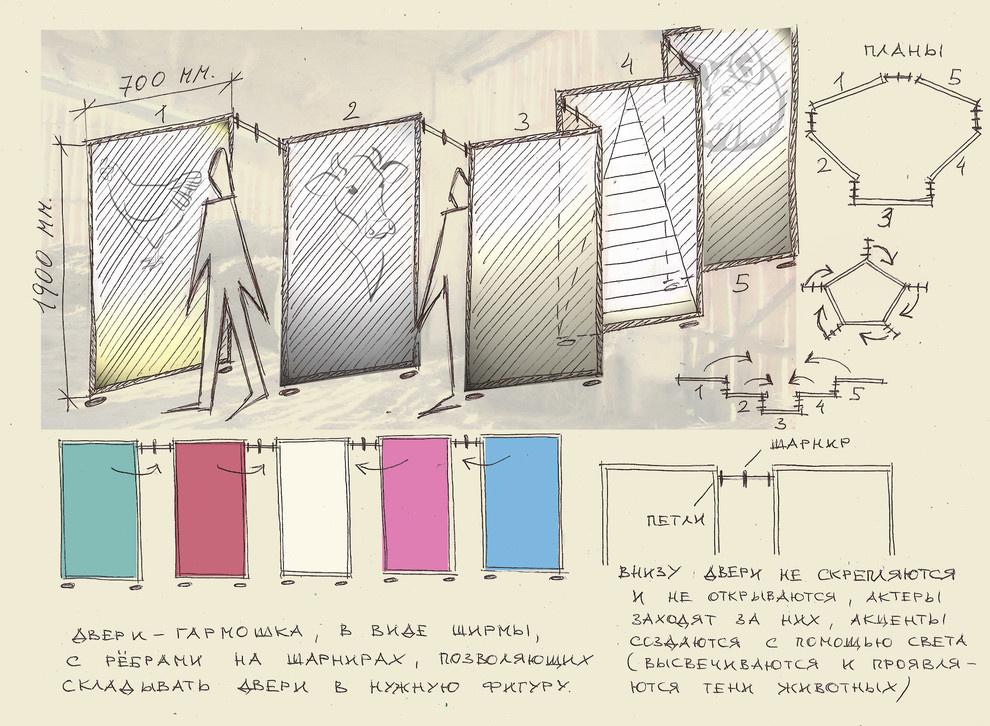 700 мм.
1
2
3
4
5
1900 мм.
ПЛАНЫ
1
5
2
4
3
1
2
3
4
5
ШАРНИР
ПЕТЛИ
ДВЕРИ – ГАРМОШКА, В ВИДЕ ШИРМЫ,
С РЁБРАМИ НА ШАРНИРАХ, ПОЗВОЛЯЮЩИХ
СКЛАДЫВАТЬ ДВЕРИ В НУЖНУЮ ФИГУРУ.
ВНИЗУ ДВЕРИ НЕ СКРЕПЛЯЮТСЯ
И НЕ ОТКРЫВАЮТСЯ, АКТЕРЫ
ЗАХОДЯТ ЗА НИХ, АКЦЕНТЫ
СОЗДАЮТСЯ С ПОМОЩЬЮ СВЕТА
(ВЫСВЕЧИВАЮТСЯ И ПРОЯВЛЯ-
ЮТСЯ ТЕНИ ЖИВОТНЫХ)